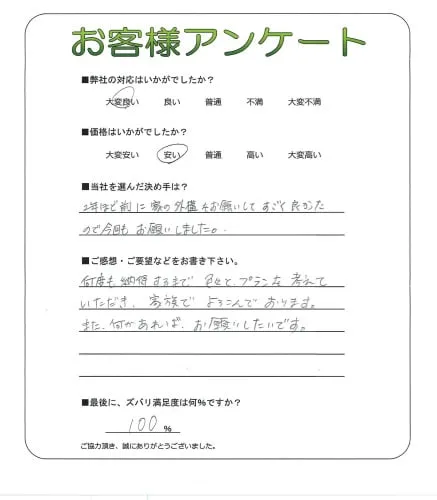 お客様アンケート
■弊社の対応はいかがでしたか？
大変良い 良い 普通 不満 大変不満
■価格はいかがでしたか？
大変安い 安い 普通 高い 大変高い
■当社を選んだ決め手は？
2年ほど前に 家の外構をお願いして すごく良かった
ので今回も お願いしました。
■ご感想・ご要望などをお書き下さい。
何度も 納得するまで 色々と プランを 考えて
いただき、家族で よろこんで おります。
また、何かあれば、お願いしたいです。
■最後に、ズバリ満足度は何％ですか？
100 %
ご協力頂き、誠にありがとうございました。